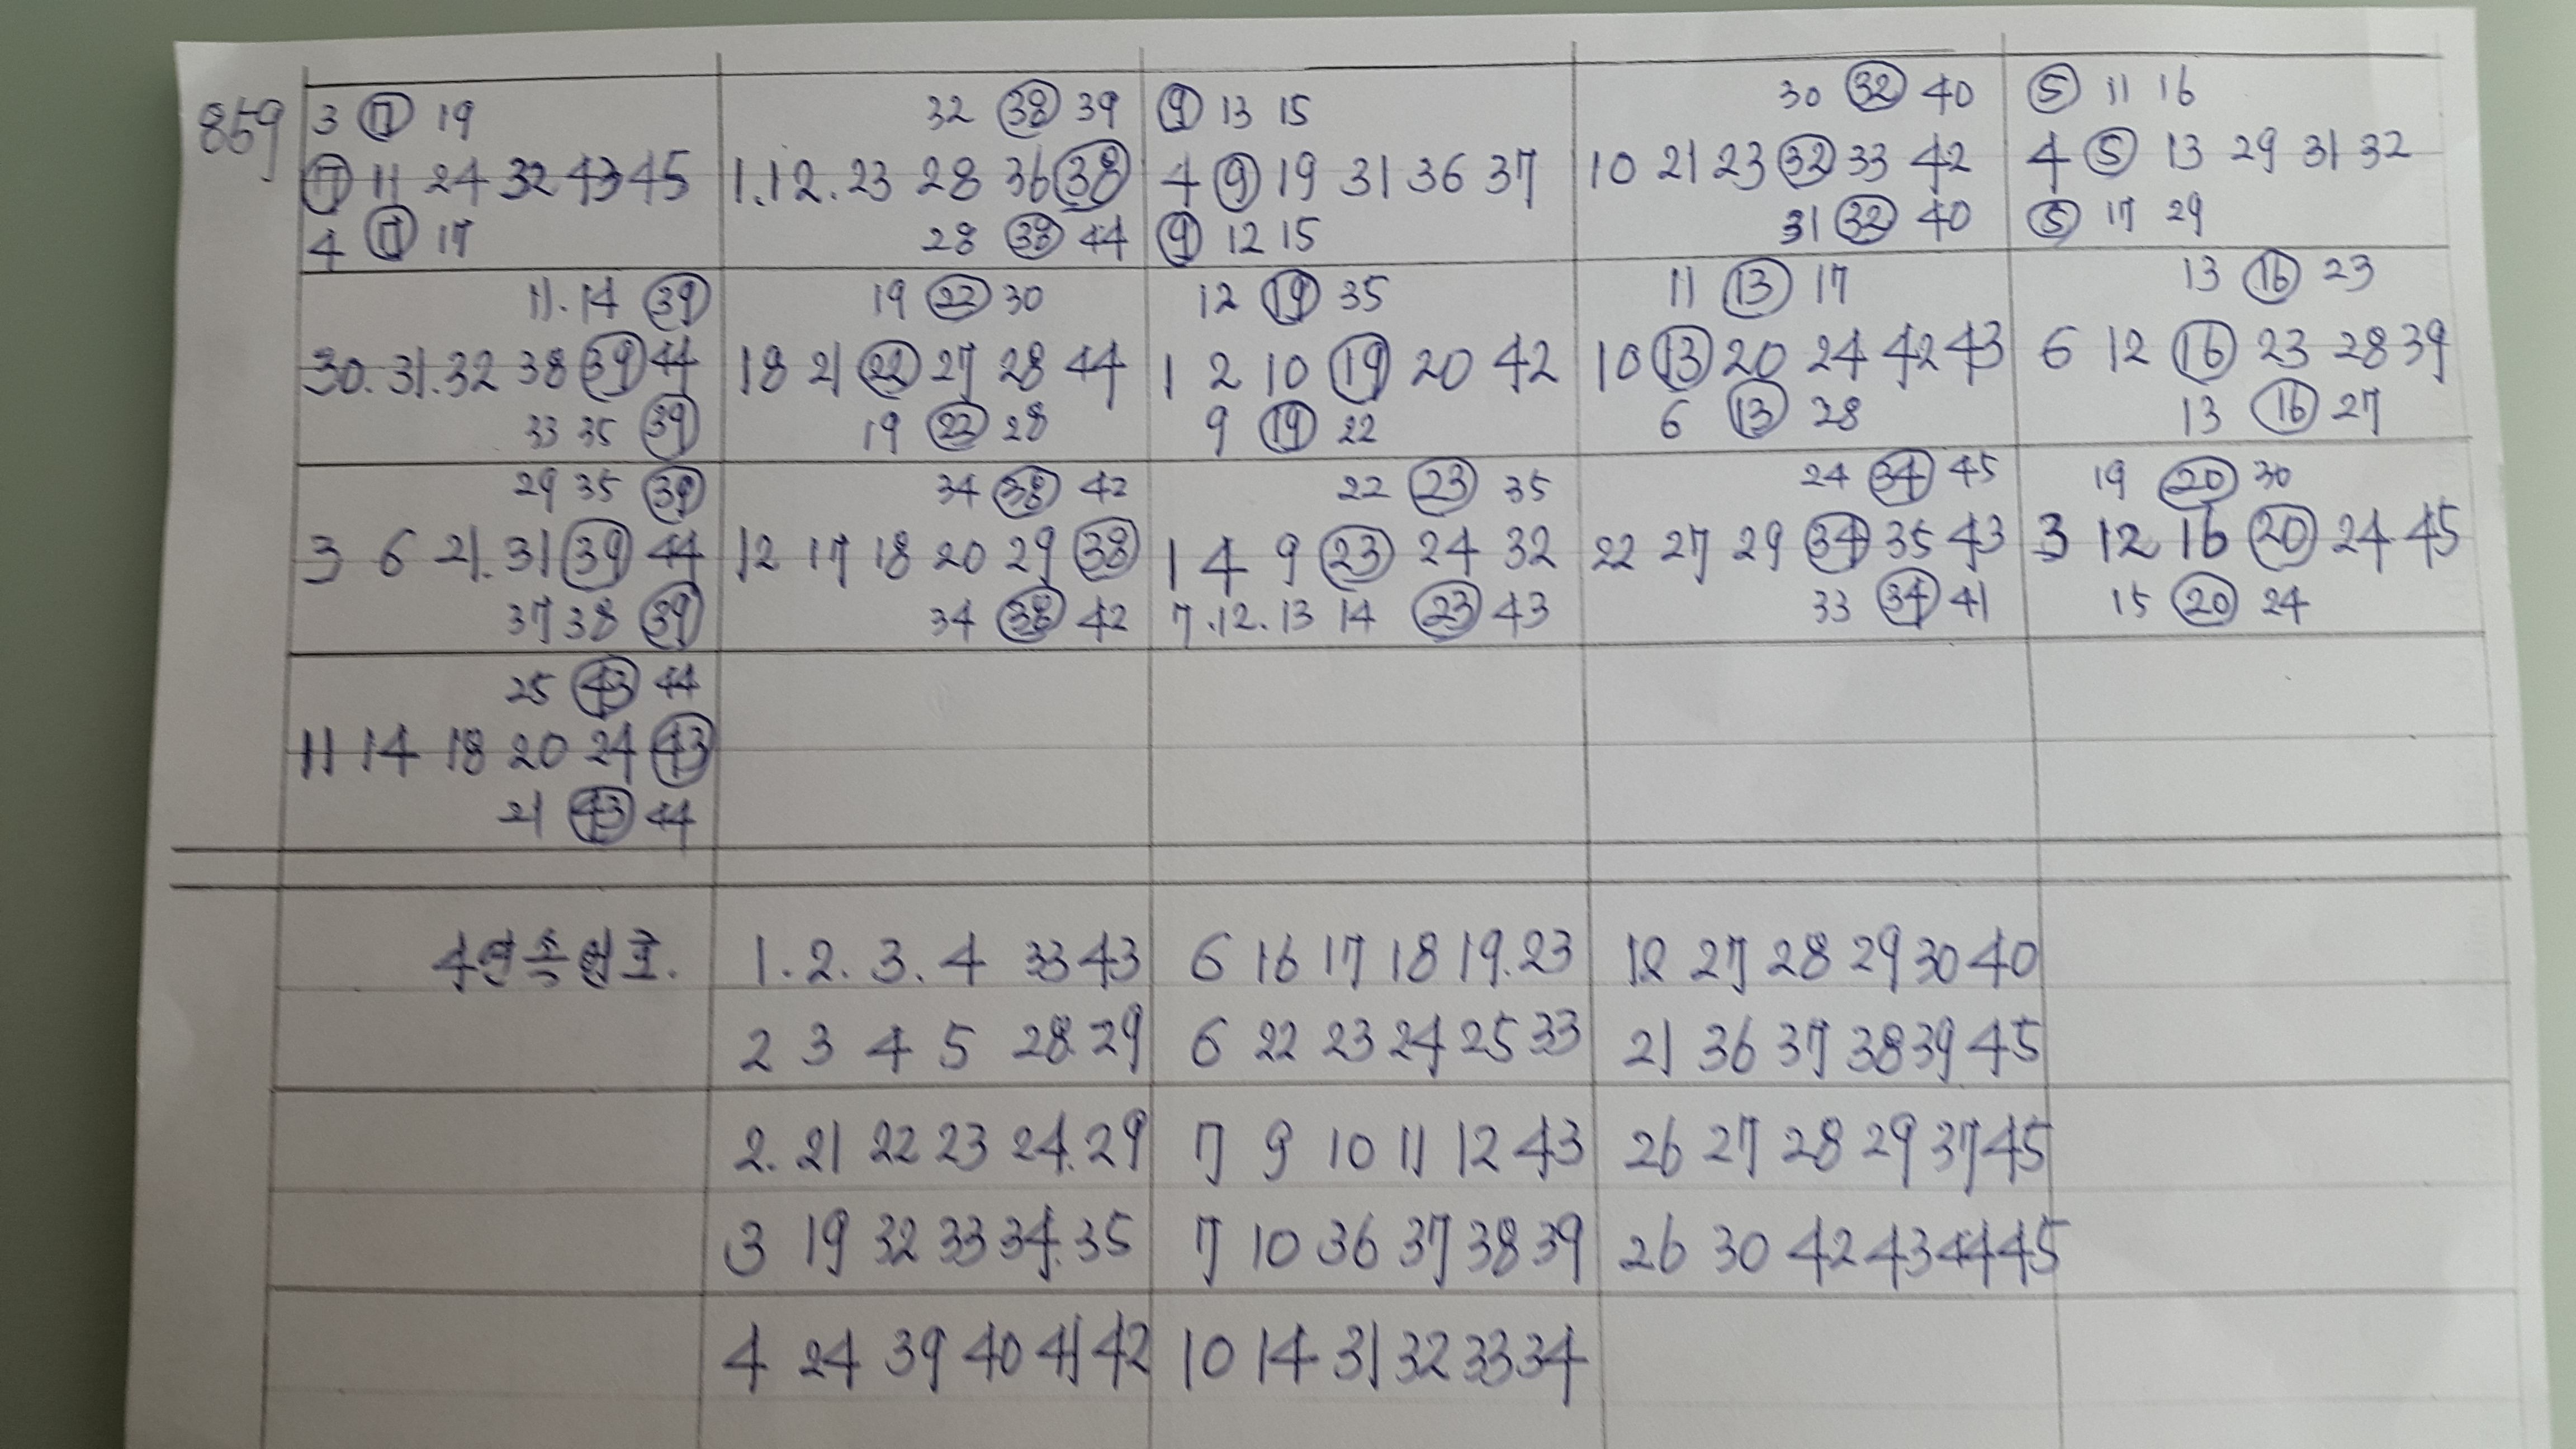 859
3 ⑦ 19
⑦ 11 24 32 43 45
4 ⑦ 17
32 ㊳ 39
1.12.23 28 36 ㊳
28 ㊳ 44
⑨ 13 15
4 ⑨ 19 31 36 37
⑨ 12 15
30 ㉜ 40
10 21 23 ㉜ 33 42
31 ㉜ 40
⑤ 11 16
4 ⑤ 13 29 31 32
⑤ 17 29
11.14 ㊴
30.31.32 38 ㊴ 44
33 35 ㊴
19 ㉒ 30
18 21 ㉒ 27 28 44
19 ㉒ 28
12 ⑲ 35
1 2 10 ⑲ 20 42
9 ⑲ 22
11 ⑬ 17
10 ⑬ 20 24 42 43
6 ⑬ 28
13 ⑯ 23
6 12 ⑯ 23 28 39
13 ⑯ 27
29 35 ㊴
3 6 21.31 ㊴ 44
37 38 ㊴
34 ㊳ 42
12 17 18 20 29 ㊳
34 ㊳ 42
22 ㉓ 35
1 4 9 ㉓ 24 32
7.12.13 14 ㉓ 43
24 ㉞ 45
22 27 29 ㉞ 35 43
33 ㉞ 41
19 ⑳ 30
3 12 16 ⑳ 24 45
15 ⑳ 24
25 ㊸ 44
11 14 18 20 24 ㊸
21 ㊸ 44
4연속번호.
1.2.3.4 33 43
2 3 4 5 28 29
2.21 22 23 24.29
3 19 32 33 34.35
4 24 39 40 41 42
6 16 17 18 19.23
6 22 23 24 25 33
7 9 10 11 12 43
7 10 36 37 38 39
10 14 31 32 33 34
27 28 29 30 40
21 36 37 38 39 45
26 27 28 29 37 45
26 30 42 43 44 45